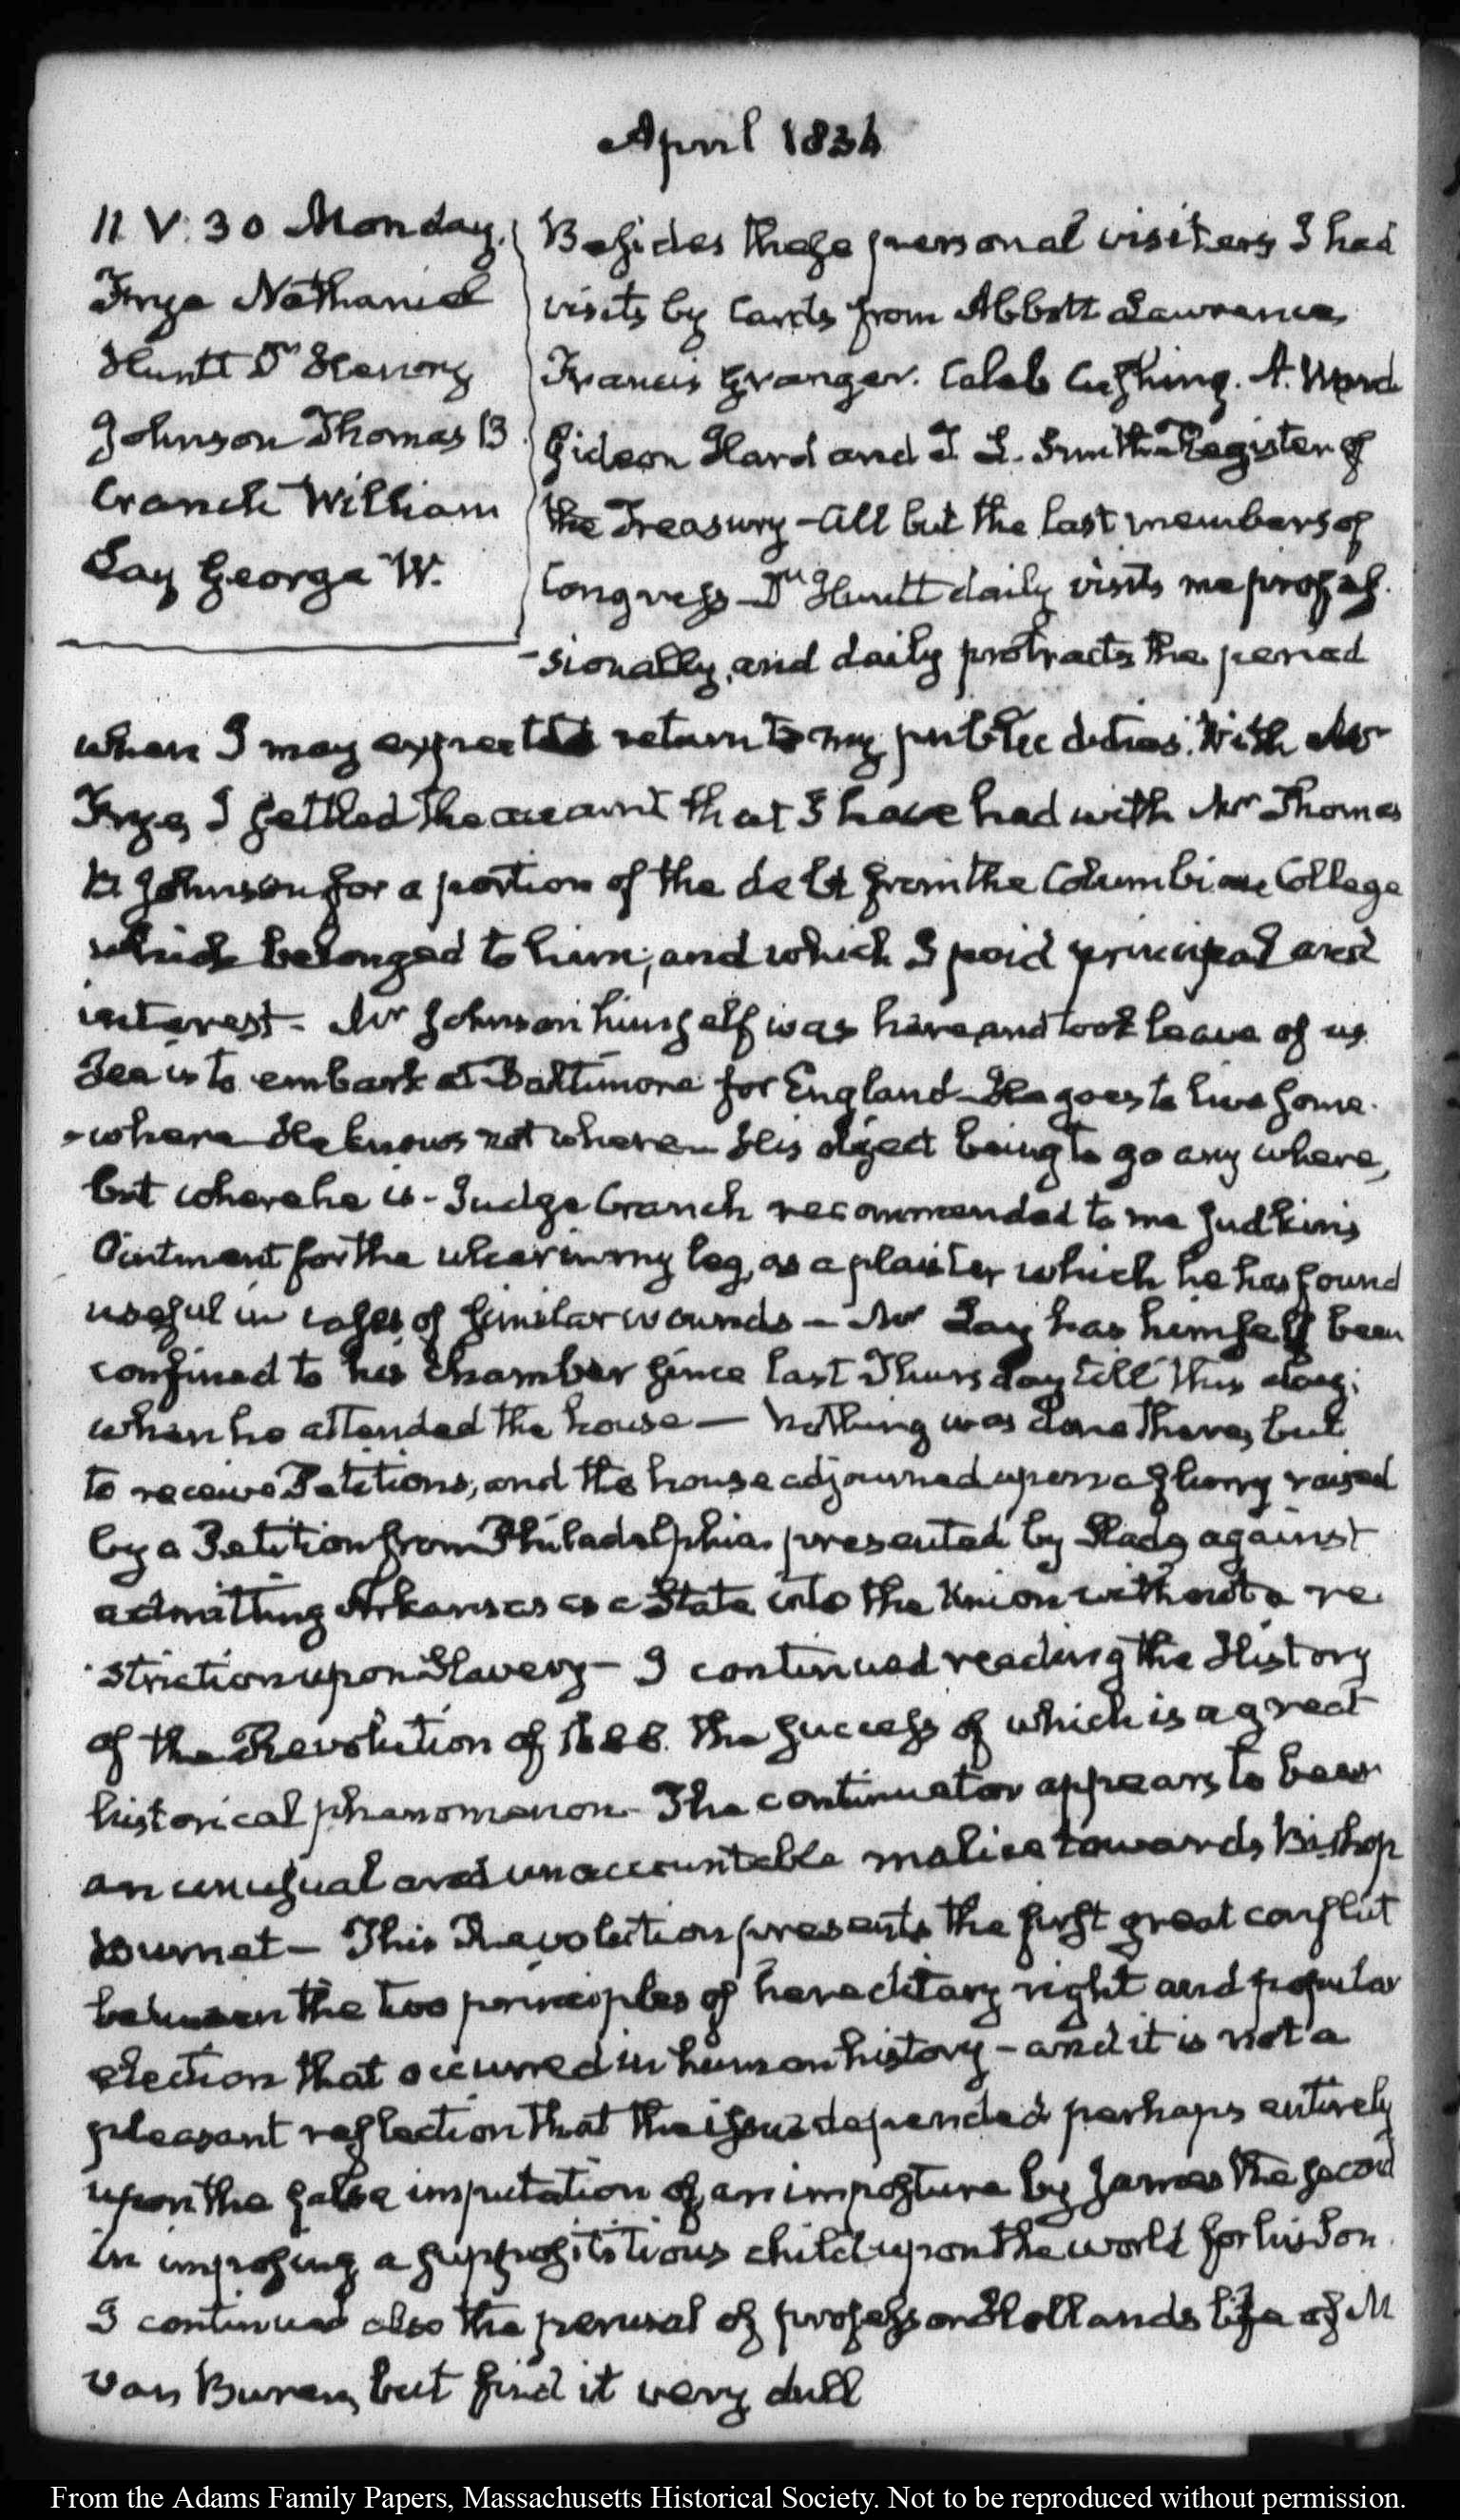 April 1836
11. V:30 Monday.
Frye Nathaniel
Huntt Dr. Henry
Johnson Thomas B.
Cranch William
Lay George W.
Besides these personal visiters I had
visits by Cards from Abbott Lawrence,
Francis Granger. Caleb Cushing. A. Ward
Gideon Hard and T. L. Smith Register of
the Treasury — All but the last members of
Congress — Dr. Huntt daily visits me profes-
-sionally, and daily protracts the period
when I may expect to return to my public duties. With Mr
Frye, I settled the account that I have had with Mr Thomas
B. Johnson for a portion of the debt from the Columbian College
which belonged to him; and which I paid principal and
interest — Mr Johnson himself was here, and took leave of us
He is to embark at Baltimore for England — He goes to live some-
-where — He knows not where — His object being to go any where,
but where he is — Judge Cranch recommended to me Judkins
Ointment for the ulcer in my leg, as a plaister which he has found
useful in cases of similar wounds — Mr Lay has himself been
confined to his chamber since last Thursday till this day;
when he attended the house — Nothing was done there, but
to receive Petitions, and the house adjourned upon a flurry raised
by a Petition from Philadelphia presented by Slade against
admitting Arkansas as a State into the Union without a re-
-striction upon Slavery — I continued reading the History
of the Revolution of 1688. The success of which is a great
historical phenomenon — The continuator appears to bear
an unusual and unaccountable malice towards Bishop
Burnet — This Revolution presents the first great conflict
between the two principles of hereditary right and popular
election that occurred in human history — and it is not a
pleasant reflection that the issue depended perhaps entirely
upon the false imputation of an imposture by James the second
in imposing a supposititious child upon the world for his Son.
I continued also the perusal of professor Hollands life of M
Van Buren, but find it very dull
From the Adams Family Papers, Massachusetts Historical Society. Not to be reproduced without permission.